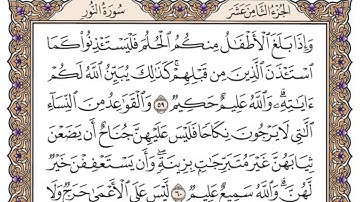 الجزء الثامن عشر سورة النور
وَإِذَا بَلَغَ ٱلْأَطْفَٰلُ مِنكُمُ ٱلْحُلُمَ فَلْيَسْتَـْٔذِنُوا۟ كَمَا
ٱسْتَـْٔذَنَ ٱلَّذِينَ مِن قَبْلِهِمْ ۚ كَذَٰلِكَ يُبَيِّنُ ٱللَّهُ لَكُمْ
ءَايَٰتِهِۦ ۗ وَٱللَّهُ عَلِيمٌ حَكِيمٌ ٥٩ وَٱلْقَوَٰعِدُ مِنَ ٱلنِّسَآءِ
ٱلَّٰتِى لَا يَرْجُونَ نِكَاحًا فَلَيْسَ عَلَيْهِنَّ جُنَاحٌ أَن يَضَعْنَ
ثِيَابَهُنَّ غَيْرَ مُتَبَرِّجَٰتٍۭ بِزِينَةٍ ۖ وَأَن يَسْتَعْفِفْنَ خَيْرٌ
لَّهُنَّ ۗ وَٱللَّهُ سَمِيعٌ عَلِيمٌ ٦٠ لَّيْسَ عَلَى ٱلْأَعْمَىٰ حَرَجٌ وَلَا